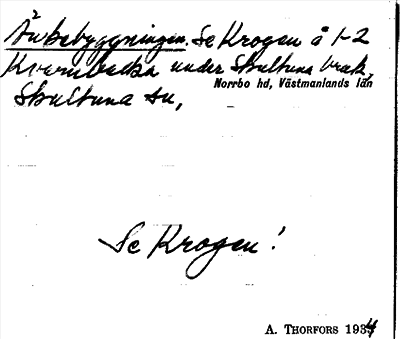 2
Änkebyggningen. Se Krogen å 1-2
Kvarnbacka under Skultuna bruk,
Skultuna sn,
Norrbo hd, Västmanlands län
Se Krogen!
A. THORFORS 1934